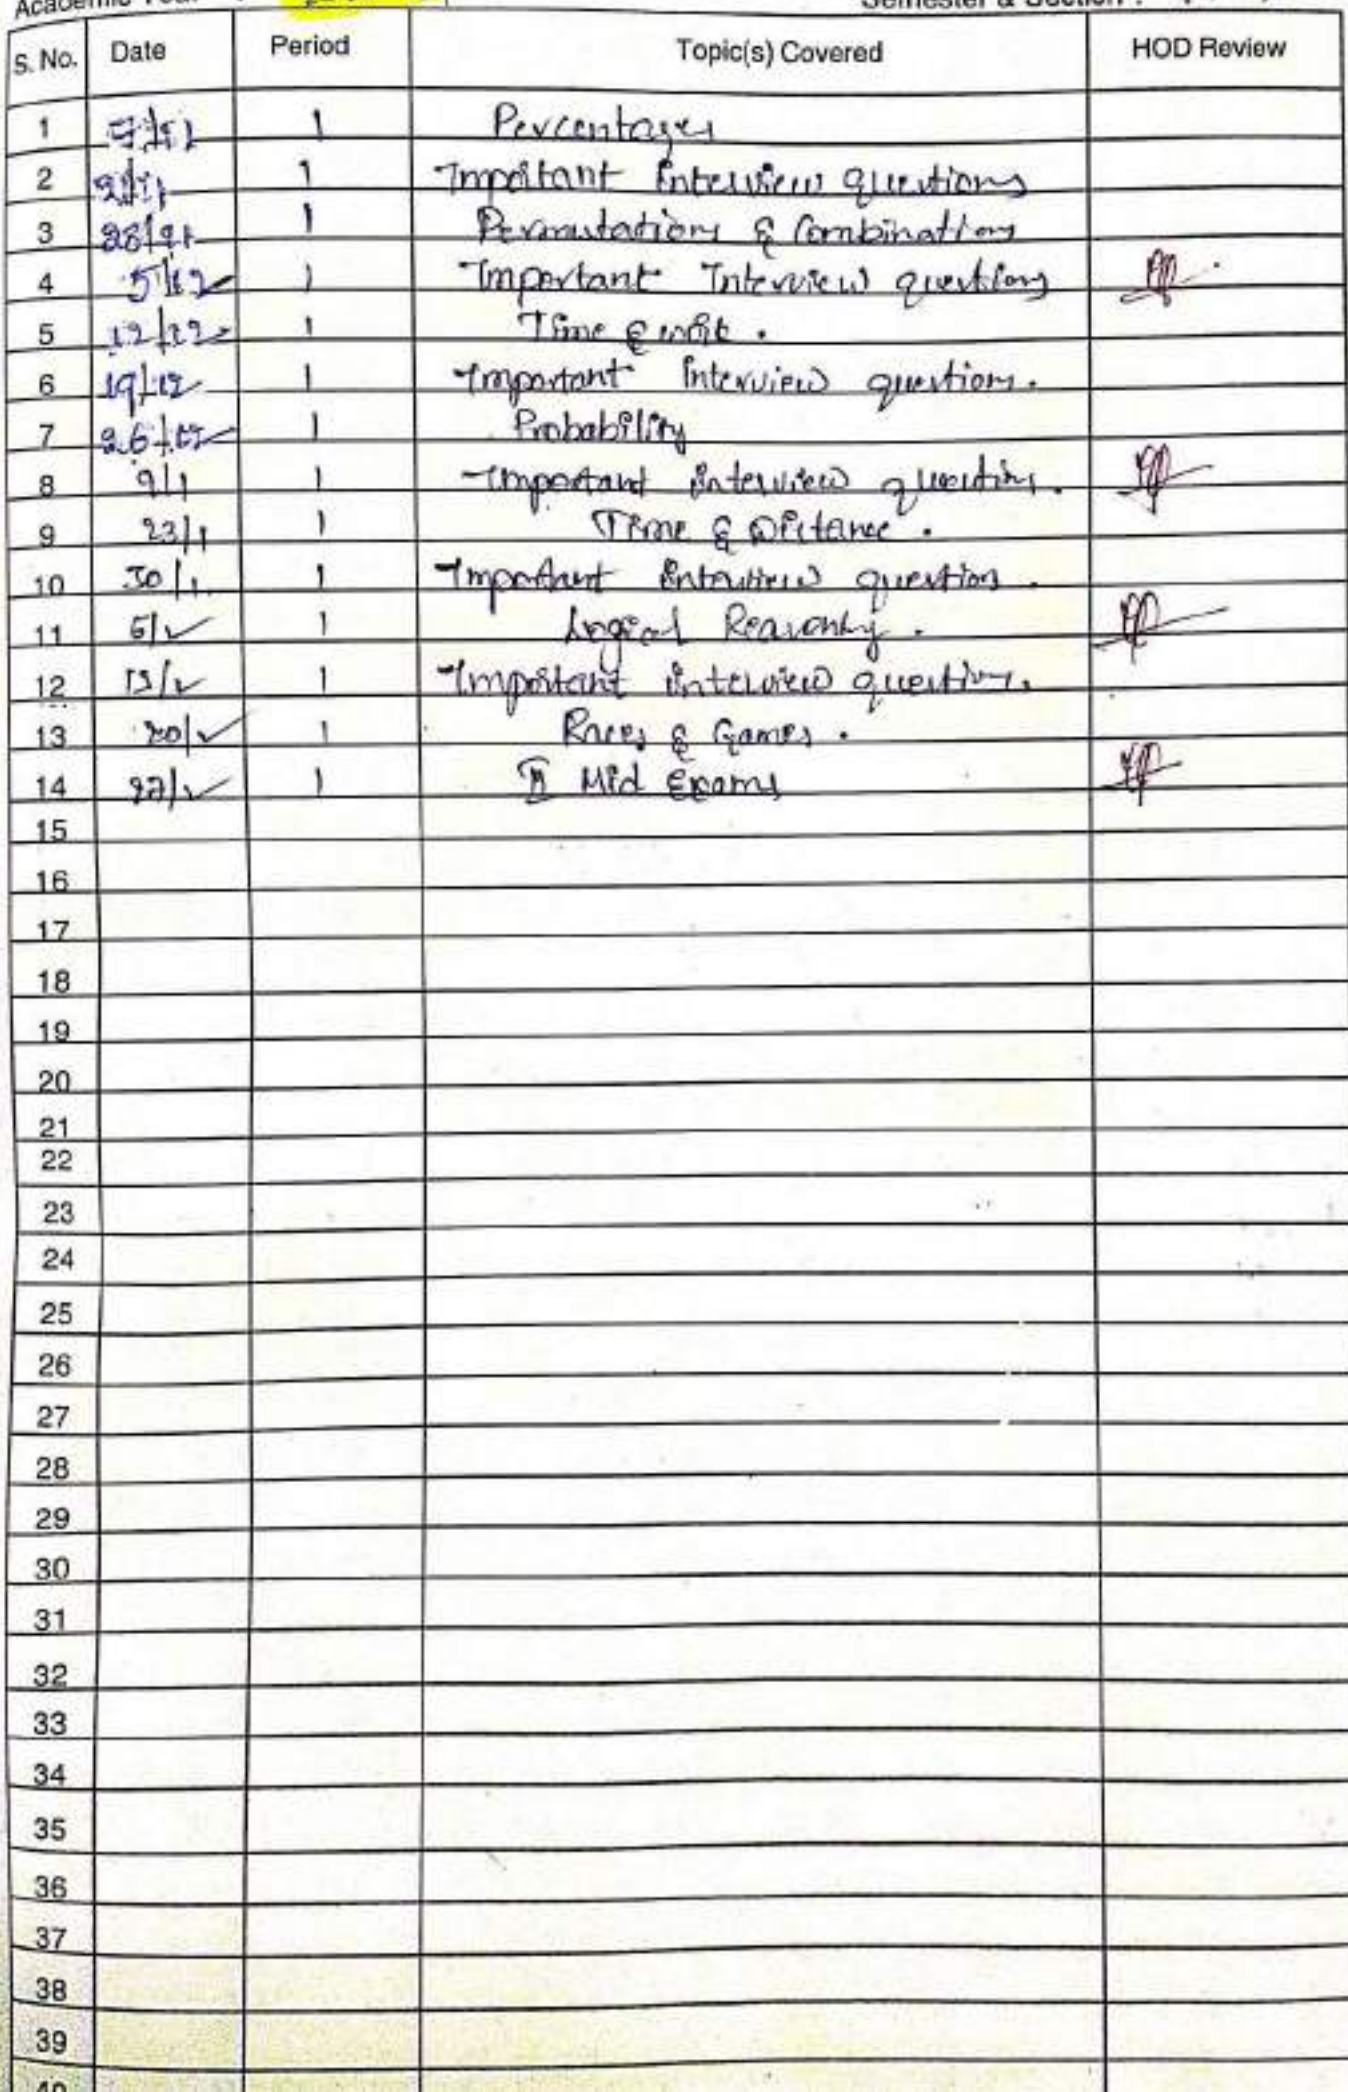 Academic Year
Semester & Section :
S. No. Date Period Topic(s) Covered HOD Review
1 1 Percentages
2 1 Important interview questions
3 1 Permutations & Combinations
4 5/12 1 Important Interview questions
5 12/12 1 Time & work.
6 19/12 1 Important interview questions.
7 26/12 1 Probability
8 9/1 1 Important interview questions.
9 23/1 1 Time & Distance.
10 30/1 1 Important interview questions.
11 1 Logical Reasoning.
12 1 Important interview questions.
13 1 Races & Games.
14 1 II Mid Exams
15
16
17
18
19
20
21
22
23
24
25
26
27
28
29
30
31
32
33
34
35
36
37
38
39
40